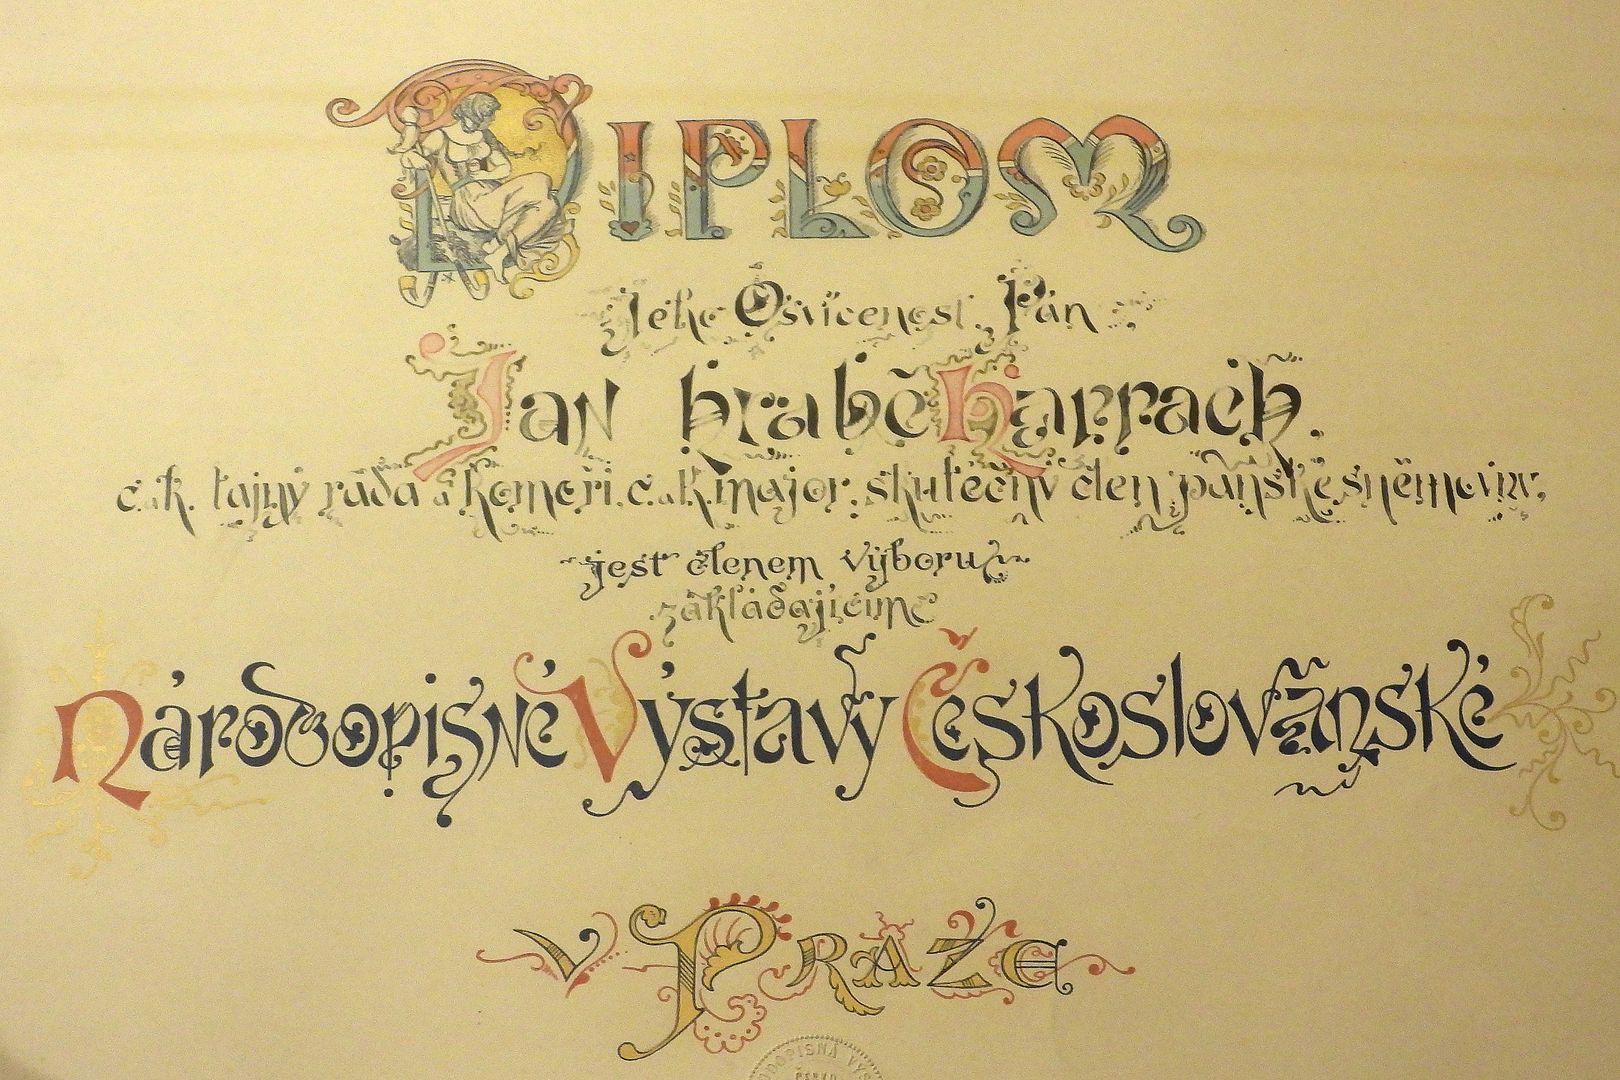 DIPLOM
Jeho Osvícenost Pán
Jan hrabě Harrach.
c. a k. tajný rada a komoří, c. a k. major, skutečný člen panské sněmovny,
jest členem výboru
zakládajícího
Národopisné Výstavy Českoslovanské
v PRAZE
NÁRODOPISNÁ VÝS
ČESKO